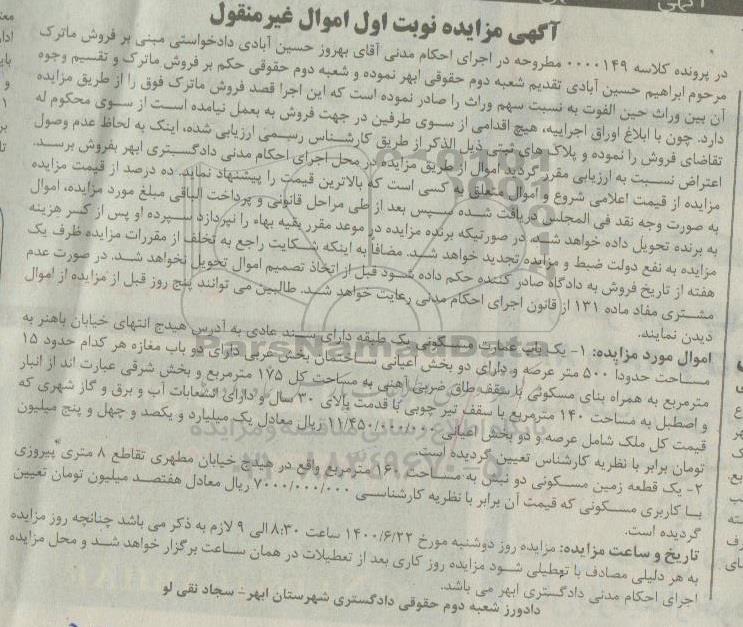 آگهی مزایده نوبت اول اموال غیرمنقول
در پرونده کلاسه ۰۰۰۰۱۴۹ مطروحه در اجرای احکام مدنی آقای بهروز حسین آبادی دادخواستی مبنی بر فروش ماترک
مرحوم ابراهیم حسین آبادی تقدیم شعبه دوم حقوقی ابهر نموده و شعبه دوم حقوقی حکم بر فروش ماترک و تقسیم وجوه
آن بین وراث حین الفوت به نسبت سهم وراث را صادر نموده است که این اجرا قصد فروش ماترک فوق را از طریق مزایده
دارد. چون با ابلاغ اوراق اجراییه، هیچ اقدامی از سوی طرفین در جهت فروش به بعمل نیامده است از سوی محکوم له
تقاضای فروش را نموده و پلاک های ثبتی ذیل الذکر از طریق کارشناس رسمی ارزیابی شده، اینک به لحاظ عدم وصول
اعتراض نسبت به ارزیابی مقرر گردید اموال از طریق مزایده در محل اجرای احکام مدنی دادگستری ابهر بفروش برسد.
مزایده از قیمت اعلامی شروع و اموال متعلق به کسی است که بالاترین قیمت را پیشنهاد نماید. ده درصد از قیمت مزایده
به صورت وجه نقد فی المجلس دریافت شده سپس بعد از طی مراحل قانونی و پرداخت الباقی مبلغ مورد مزایده، اموال
به برنده تحویل داده خواهد شد. در صورتیکه برنده مزایده در موعد مقرر بقیه بهاء را نپردازد سپرده او پس از کسر هزینه
مزایده به نفع دولت ضبط و مزایده تجدید خواهد شد. مضافا به اینکه شکایت راجع به تخلف از مقررات مزایده ظرف یک
هفته از تاریخ فروش به دادگاه صادر کننده حکم داده شود قبل از اتخاذ تصمیم اموال تحویل نخواهد شد. در صورت عدم
مشتری مفاد ماده ۱۳۱ از قانون اجرای احکام مدنی رعایت خواهد شد. طالبین می توانند پنج روز قبل از مزایده از اموال
دیدن نمایند.
اموال مورد مزایده: ۱- یک باب عمارت مسکونی یک طبقه دارای سند عادی به آدرس هیدج انتهای خیابان باهنر به
مساحت حدودا ۵۰۰ متر عرصه و دارای دو بخش اعیانی ساختمان بخش غربی دارای دو باب مغازه هر کدام حدود ۱۵
مترمربع به همراه بنای مسکونی با سقف طاق ضربی آهنی به مساحت کل ۱۷۵ مترمربع و بخش شرقی عبارت اند از انبار
و اصطبل به مساحت ۱۴۰ مترمربع با سقف تیر چوبی با قدمت بالای ۳۰ سال و دارای انشعابات آب و برق و گاز شهری که
قیمت کل ملک شامل عرصه و دو بخش اعیانی ۱۱/۴۵۰/۰۰۰/۰۰۰ ریال معادل یک میلیارد و یکصد و چهل و پنج میلیون
تومان برابر با نظریه کارشناس تعیین گردیده است.
۲- یک قطعه زمین مسکونی دو نبش به مساحت ۱۶۰ مترمربع واقع در هیدج خیابان مطهری تقاطع ۸ متری پیروزی
با کاربری مسکونی که قیمت آن برابر با نظریه کارشناسی ۷۰۰۰/۰۰۰/۰۰۰ ریال معادل هفتصد میلیون تومان تعیین
گردیده است.
تاریخ و ساعت مزایده: مزایده روز دوشنبه مورخ ۱۴۰۰/۶/۲۲ ساعت ۸:۳۰ الی ۹ لازم به ذکر می باشد چنانچه روز مزایده
به هر دلیلی مصادف با تعطیلی شود مزایده روز کاری بعد از تعطیلات در همان ساعت برگزار خواهد شد و محل مزایده
اجرای احکام مدنی دادگستری ابهر می باشد.
دادورز شعبه دوم حقوقی دادگستری شهرستان ابهر - سجاد نقی لو
ParsNamadData
پایگاه اطلاع رسانی مناقصه و مزایده
۰۲۱-۸۸۳۴۹۶۷۰-۵